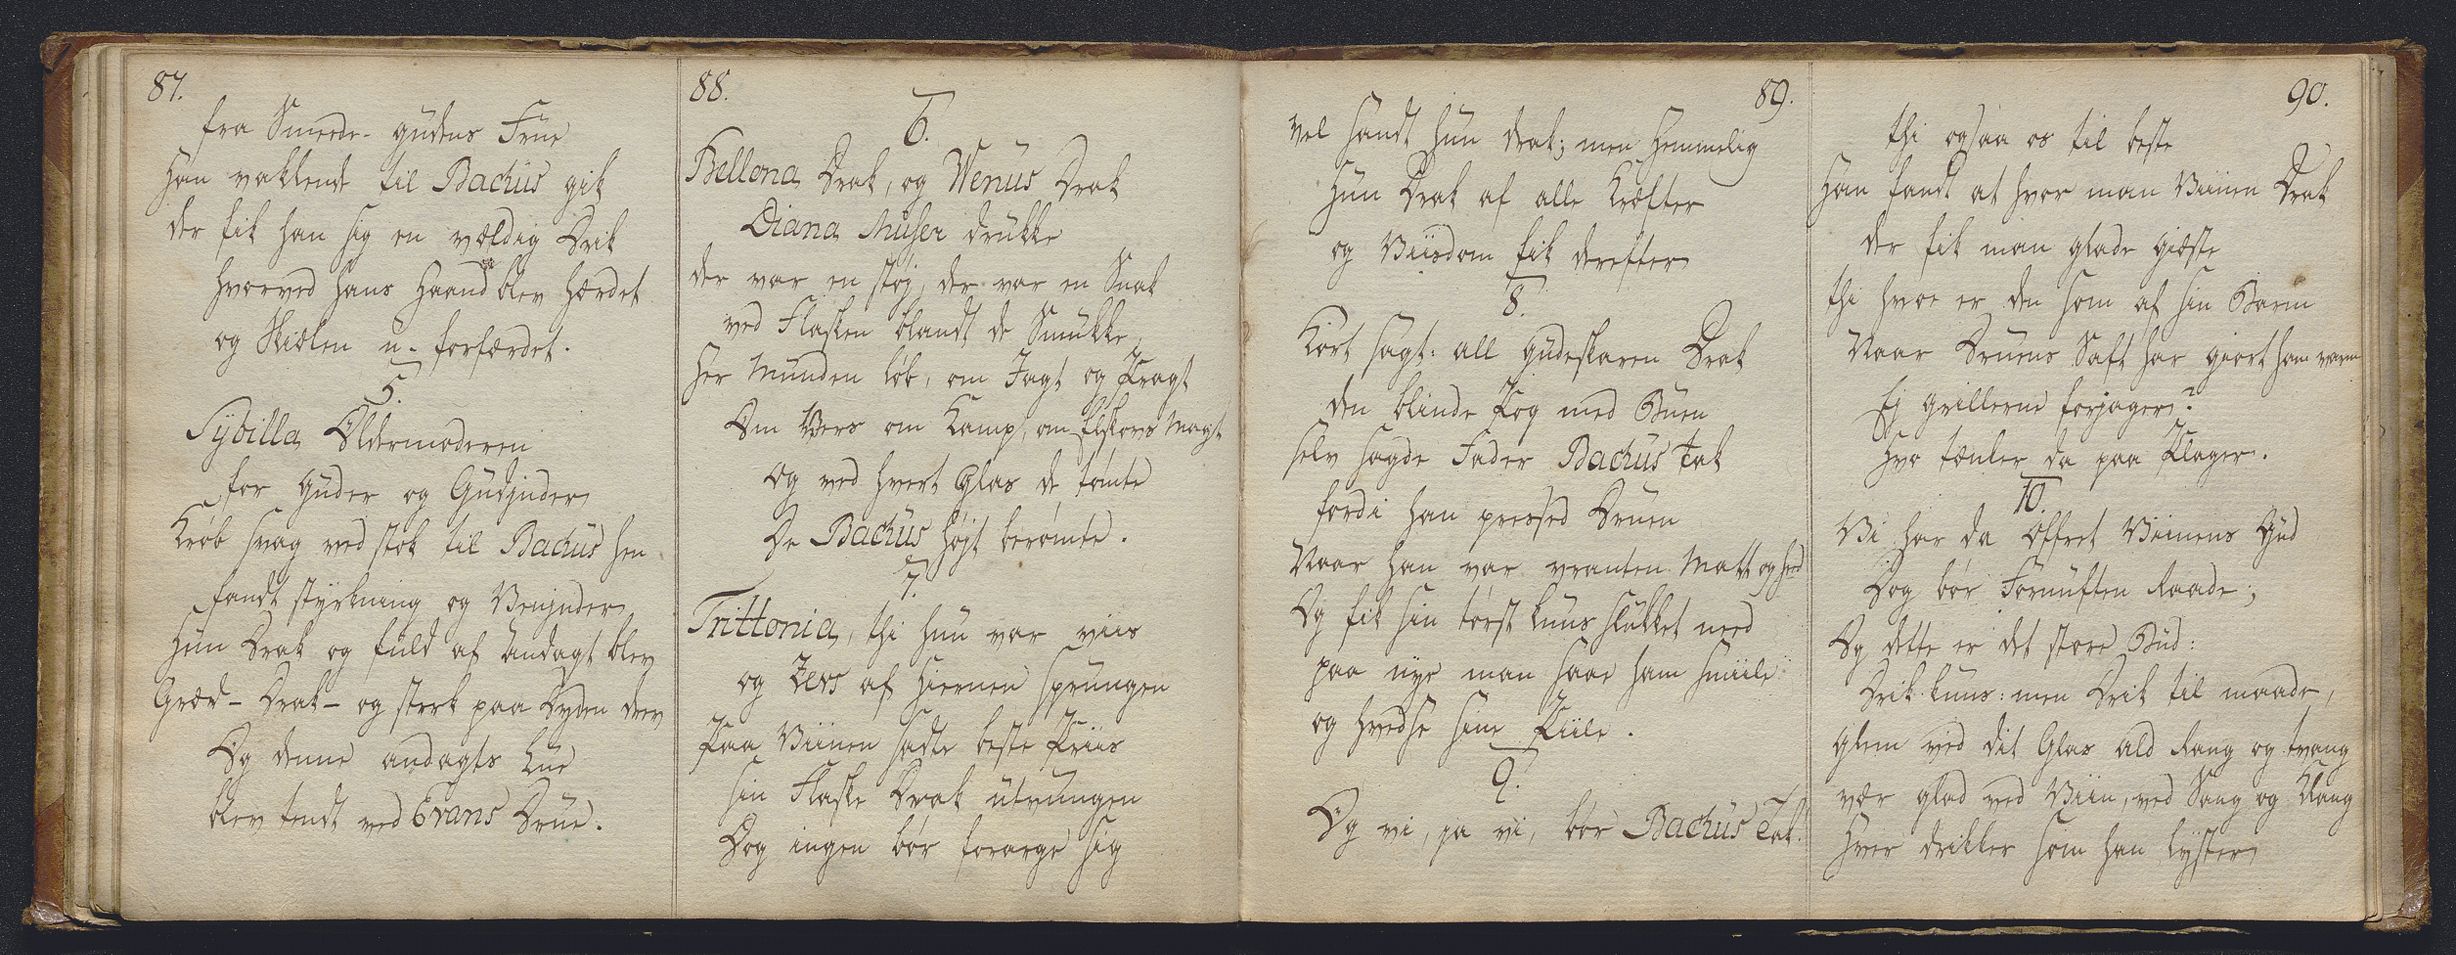 87.
fra Smede- gudens Frue
Han vaklende til Bachus gik
der fik han sig en vældig Drik
hvorved hans Haand blev hærdet
og Siælen u- forfærdet.
5.
Sybilla Oldermoderen
for Guder og Gudinder
Krøb svag ved stok til Bachus hen
fandt styrkning og Veninder
Hun Drak og fuld af andagt blev
Græd - Drak - og sterk paa Dyden drev
Og denne andagts Lue
blev tendt ved Evans Drue.
88.
6.
Bellona Drak, og Wenus Drak
Diana Muser drukke
der var en støj, der var en Snak
ved Flasken blandt de Smukke,
Her Munden løb, om Jagt og Pragt
Om Vers om Kamp, om Elskovs Magt
Og ved hvert Glas de tømte
De Bachus højt berømte.
7.
Trittonia, thi hun var viis
og Zevs af Hiernen sprungen
Paa Viinen sadte beste Priis
Sin Flaske Drak utvungen
Dog ingen bør forarge sig
89.
vel sandt hun drak; men hemmelig
Hun Drak af alle Kræfter
og Viisdom fik derefter
8.
Kort sagt: all Gudeskaren Drak
den blinde Pog med Buen
selv sagde Fader Bachus Tak
fordi han pressed Druen
Naar han var vranten Matt og heed
Og fik sin tørst kuns slukket need
paa nye man saae ham smiile
og hvedse sine Piile.
9.
Og vi, ja vi, bør Bachus Tak!
90.
thi ogsaa os til beste
Han fandt at hvor man Viinen Drak
der fik man glade Giæste
thi hvor er den som af sin Barm
Naar Druens Saft har giort ham varm
Ej grillerne forjager?
Hvo tænker da paa Plager.
10.
Vi har da Offret Viinens Gud
Dog bør Fornuften Raade;
Og dette er det store Bud:
Drik kuns: men Drik til maade,
glem ved dit Glas ald Rang og tvang
vær glad ved Viin, ved Sang og Klang
Hver drikker som han lyster